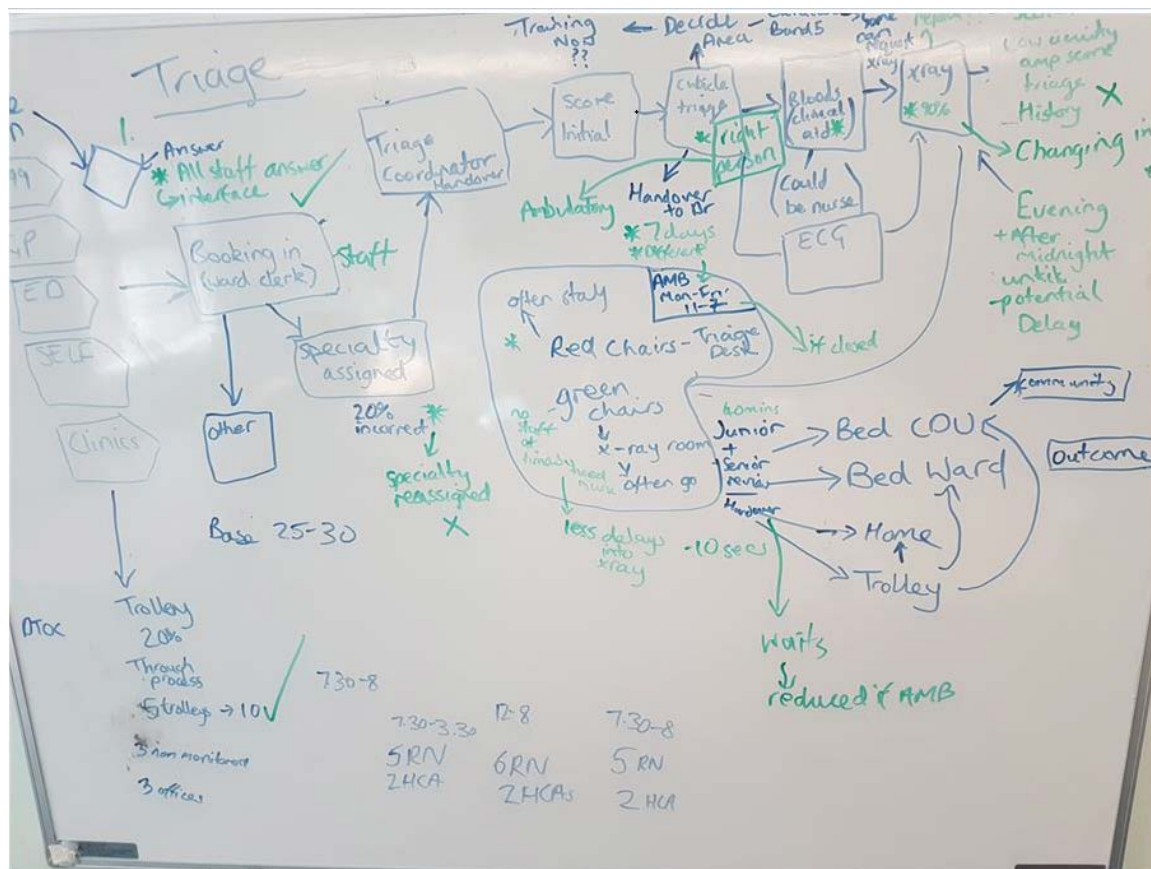 Triage
Training
Now
??
Decide
Area
Band 5
can
request
xray
1.
Answer
* All staff answer
interface
99
GP
ED
SELF
Clinics
Booking in
(ward clerk)
Staff
Specialty
assigned
20%
incorrect *
specialty
reassigned
X
Other
Base 25-30
Triage
Coordinator
Handover
Score
Initial
cubicle
triage
* right
person
Bloods
(clinical
aid) *
Could
be nurse
ECG
xray
* 90%
Low acuity
amp score
triage
History X
Changing in
Evening
+ After
midnight
- potential
Delay
Ambulatory
Handover
to Dr
* 7 days
* Different
AMB
Mon-Fri
11-7
if closed
often stay
* Red Chairs - Triage
Desk
green
chairs
x-ray room
often go
no
staff
less delays
into
xray
-10 secs
40mins
Junior
+
Senior
review
Handover
Bed CDU
Bed Ward
Home
Trolley
Community
Outcome
waits
reduced if AMB
DTOC
Trolley
20%
Through
process
5 trolleys → 10
3 non monitored
3 offices
7.30-8
7.30-3.30
5RN
2HCA
12-8
6RN
2HCAs
7.30-8
5RN
2 HCA